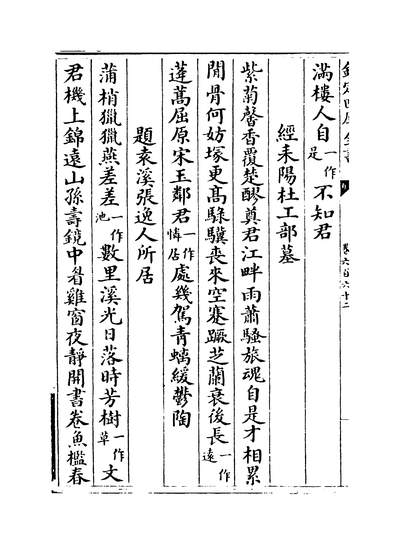 滿樓人自一作足不知君
經耒陽杜工部墓
紫菊馨香覆楚醪奠君江畔雨蕭騷旅魂自是才相累
閒骨何妨塚更高騄驥喪來空蹇蹶芝蘭衰後長一作遠
蓬蒿屈原宋玉鄰君一作憐居處幾駕青螭緩鬱陶
題袁溪張逸人所居
蒲梢獵獵燕差差一作池數里溪光日落時芳樹一作草文
君機上錦遠山孫壽鏡中眉雞窗夜靜開書卷魚檻春